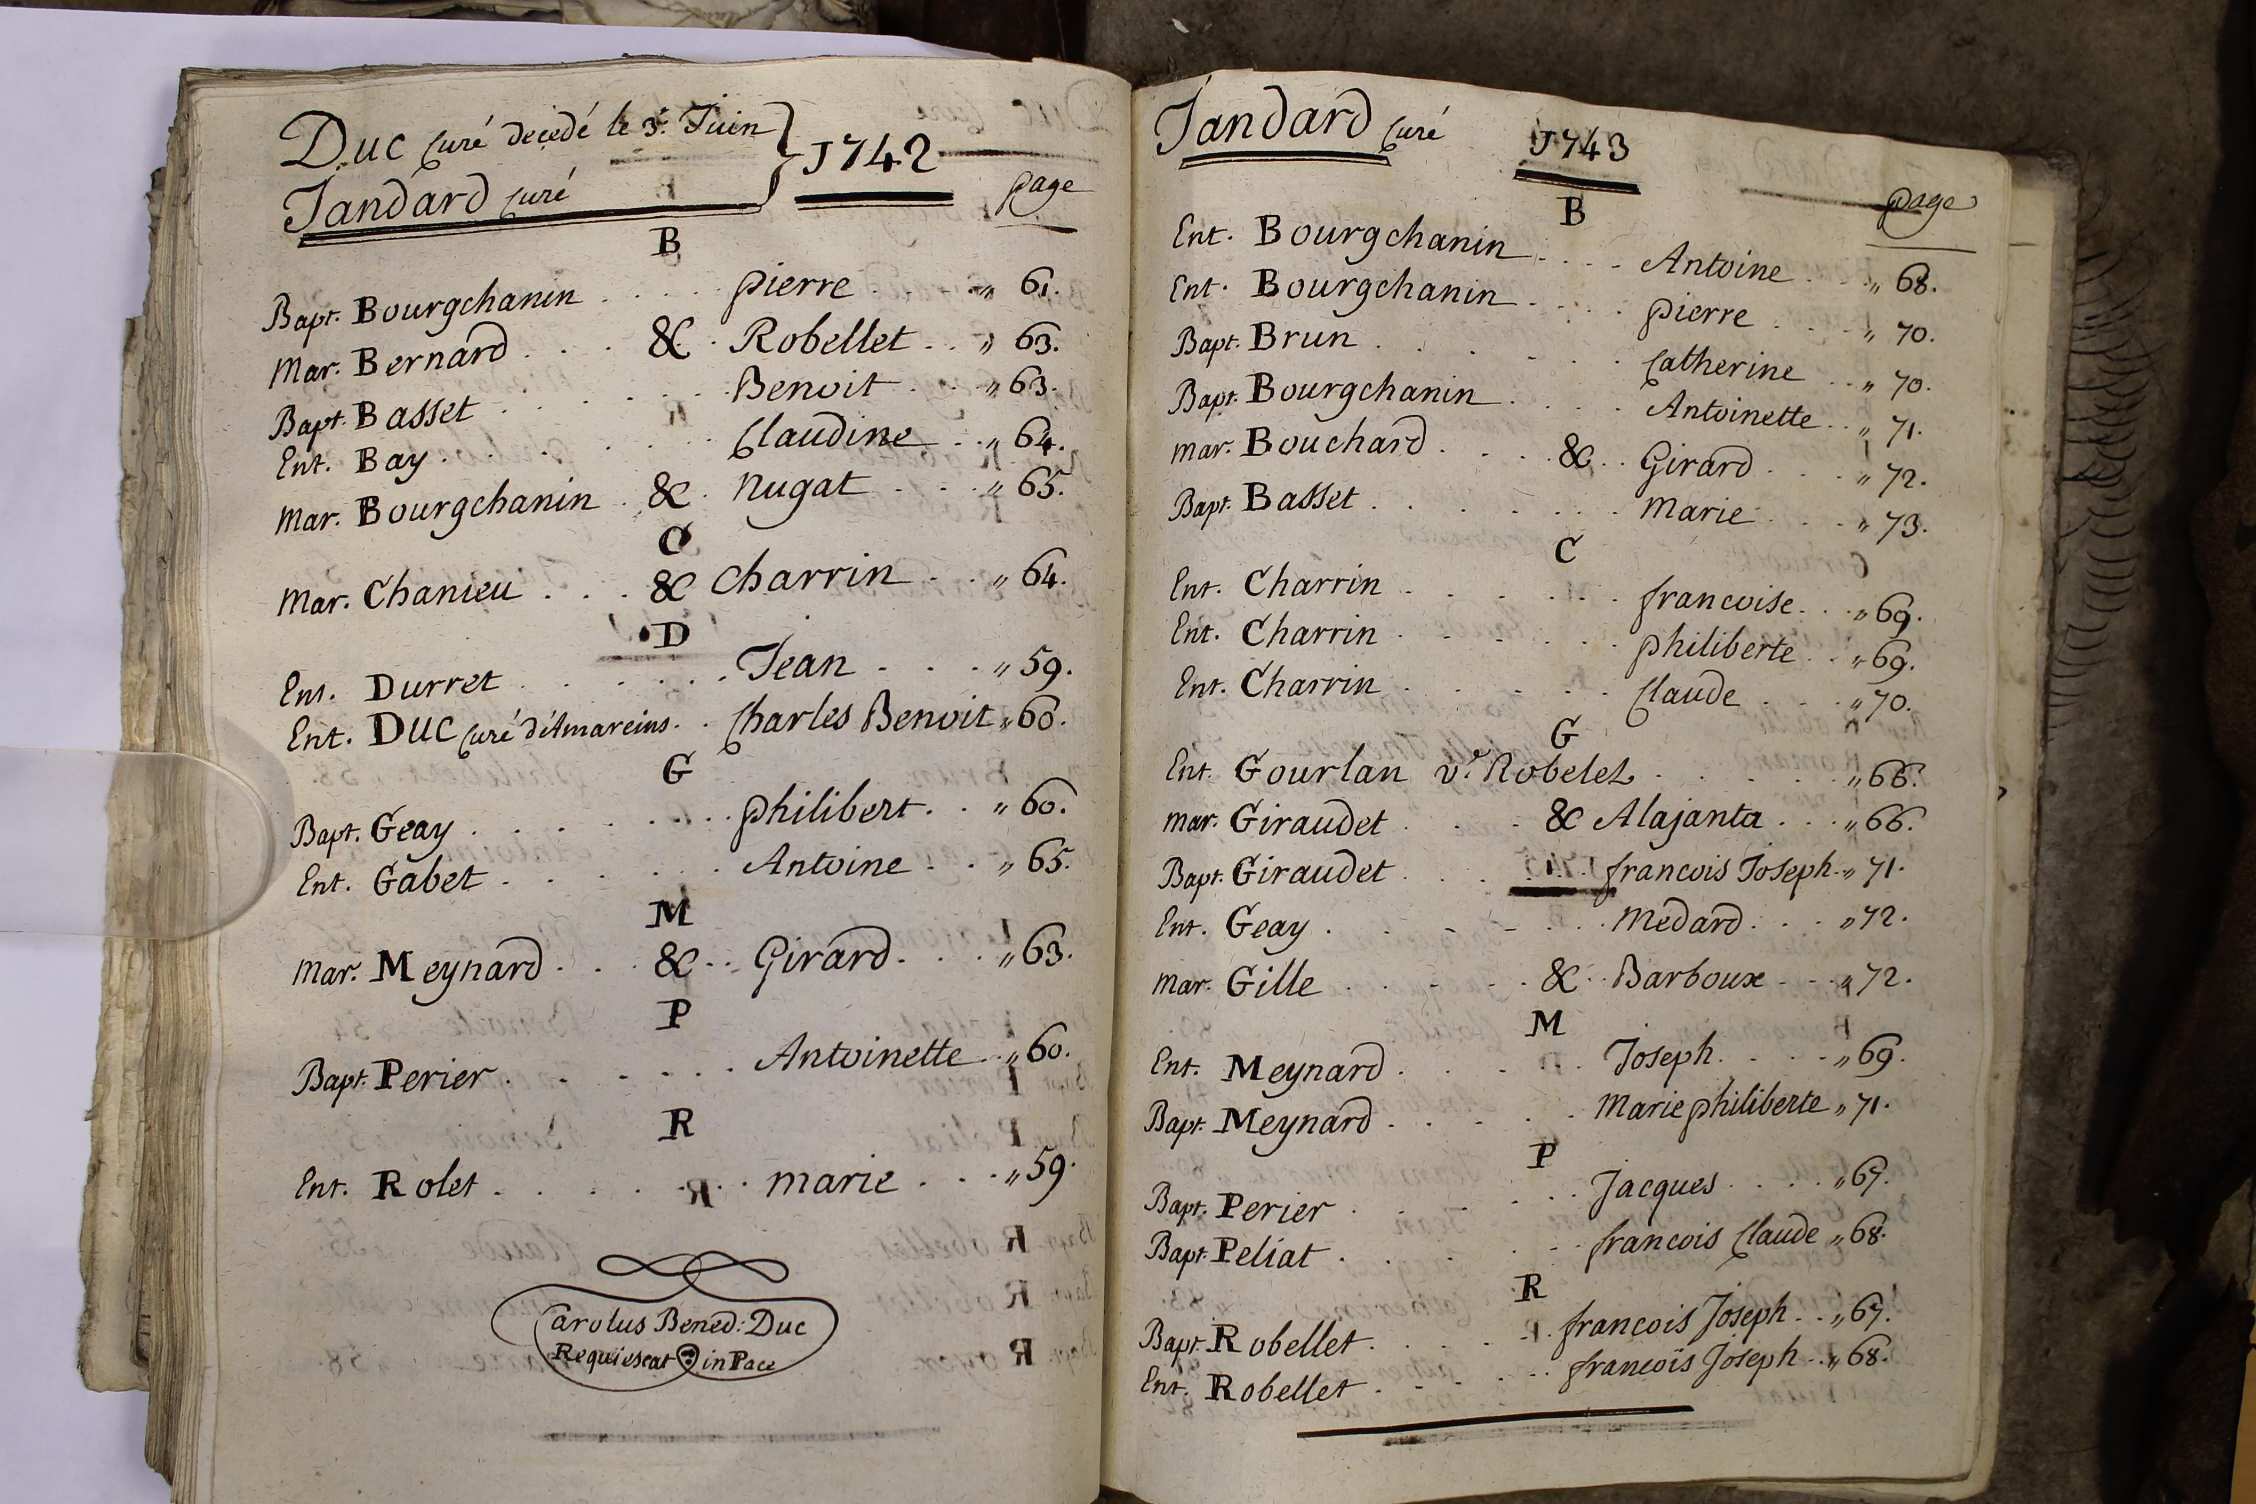 Duc Curé decedé le 3e. Juin
Jandard Curé
1742
page
B
Bapt. Bourgchanin . . . . . pierre . . . . „ 61.
Mar. Bernard . . . . & . Robellet . . „ 63.
Bapt. Basset . . . . . . . Benoit . . . „ 63.
Ent. Bay . . . . . . . Claudine . . „ 64.
Mar. Bourgchanin . & . nugat . . . . „ 65.
C
Mar. Chanieu . . . & Charrin . . „ 64.
D
Ent. Durret . . . . . . . Jean . . . . „ 59.
Ent. Duc Curé d'Amareins . . Charles Benoit „ 60.
G
Bapt. Geay . . . . . . . philibert . . „ 60.
Ent. Gabet . . . . . . . Antoine . . „ 65.
M
Mar. Meynard . . . & . . Girard . . . . „ 63.
P
Bapt. Perier . . . . . . . Antoinette . . „ 60.
R
Ent. Rolet . . . . . . . marie . . . . „ 59.
Carolus Bened: Duc
Requiescat in Pace
Jandard Curé
1743
page
B
Ent. Bourgchanin . . . . Antoine . . . „ 68.
Ent. Bourgchanin . . . . pierre . . . . „ 70.
Bapt. Brun . . . . . . . Catherine . . „ 70.
Bapt. Bourgchanin . . . . Antoinette . . „ 71.
Mar. Bouchard . . . . & . . Girard . . . . „ 72.
Bapt. Basset . . . . . . . Marie . . . . „ 73.
C
Ent. Charrin . . . . . . francoise . . . „ 69.
Ent. Charrin . . . . . . philiberte . . „ 69.
Ent. Charrin . . . . . . Claude . . . . „ 70.
G
Ent. Gourlan ve. Robelet . . . . . „ 66.
Mar. Giraudet . . . . & Alajanta . . . „ 66.
Bapt. Giraudet . . . . . . francois Joseph . „ 71.
Ent. Geay . . . . . . . Medard . . . . „ 72.
Mar. Gille . . . . . & . . Barboux . . . „ 72.
M
Ent. Meynard . . . . . . Joseph . . . . „ 69.
Bapt. Meynard . . . . . Marie philiberte „ 71.
P
Bapt. Perier . . . . . . . Jacques . . . . „ 67.
Bapt. Peliat . . . . . . francois Claude „ 68.
R
Bapt. Robellet . . . . . . francois Joseph . . „ 67.
Ent. Robellet . . . . . . francois Joseph . . „ 68.